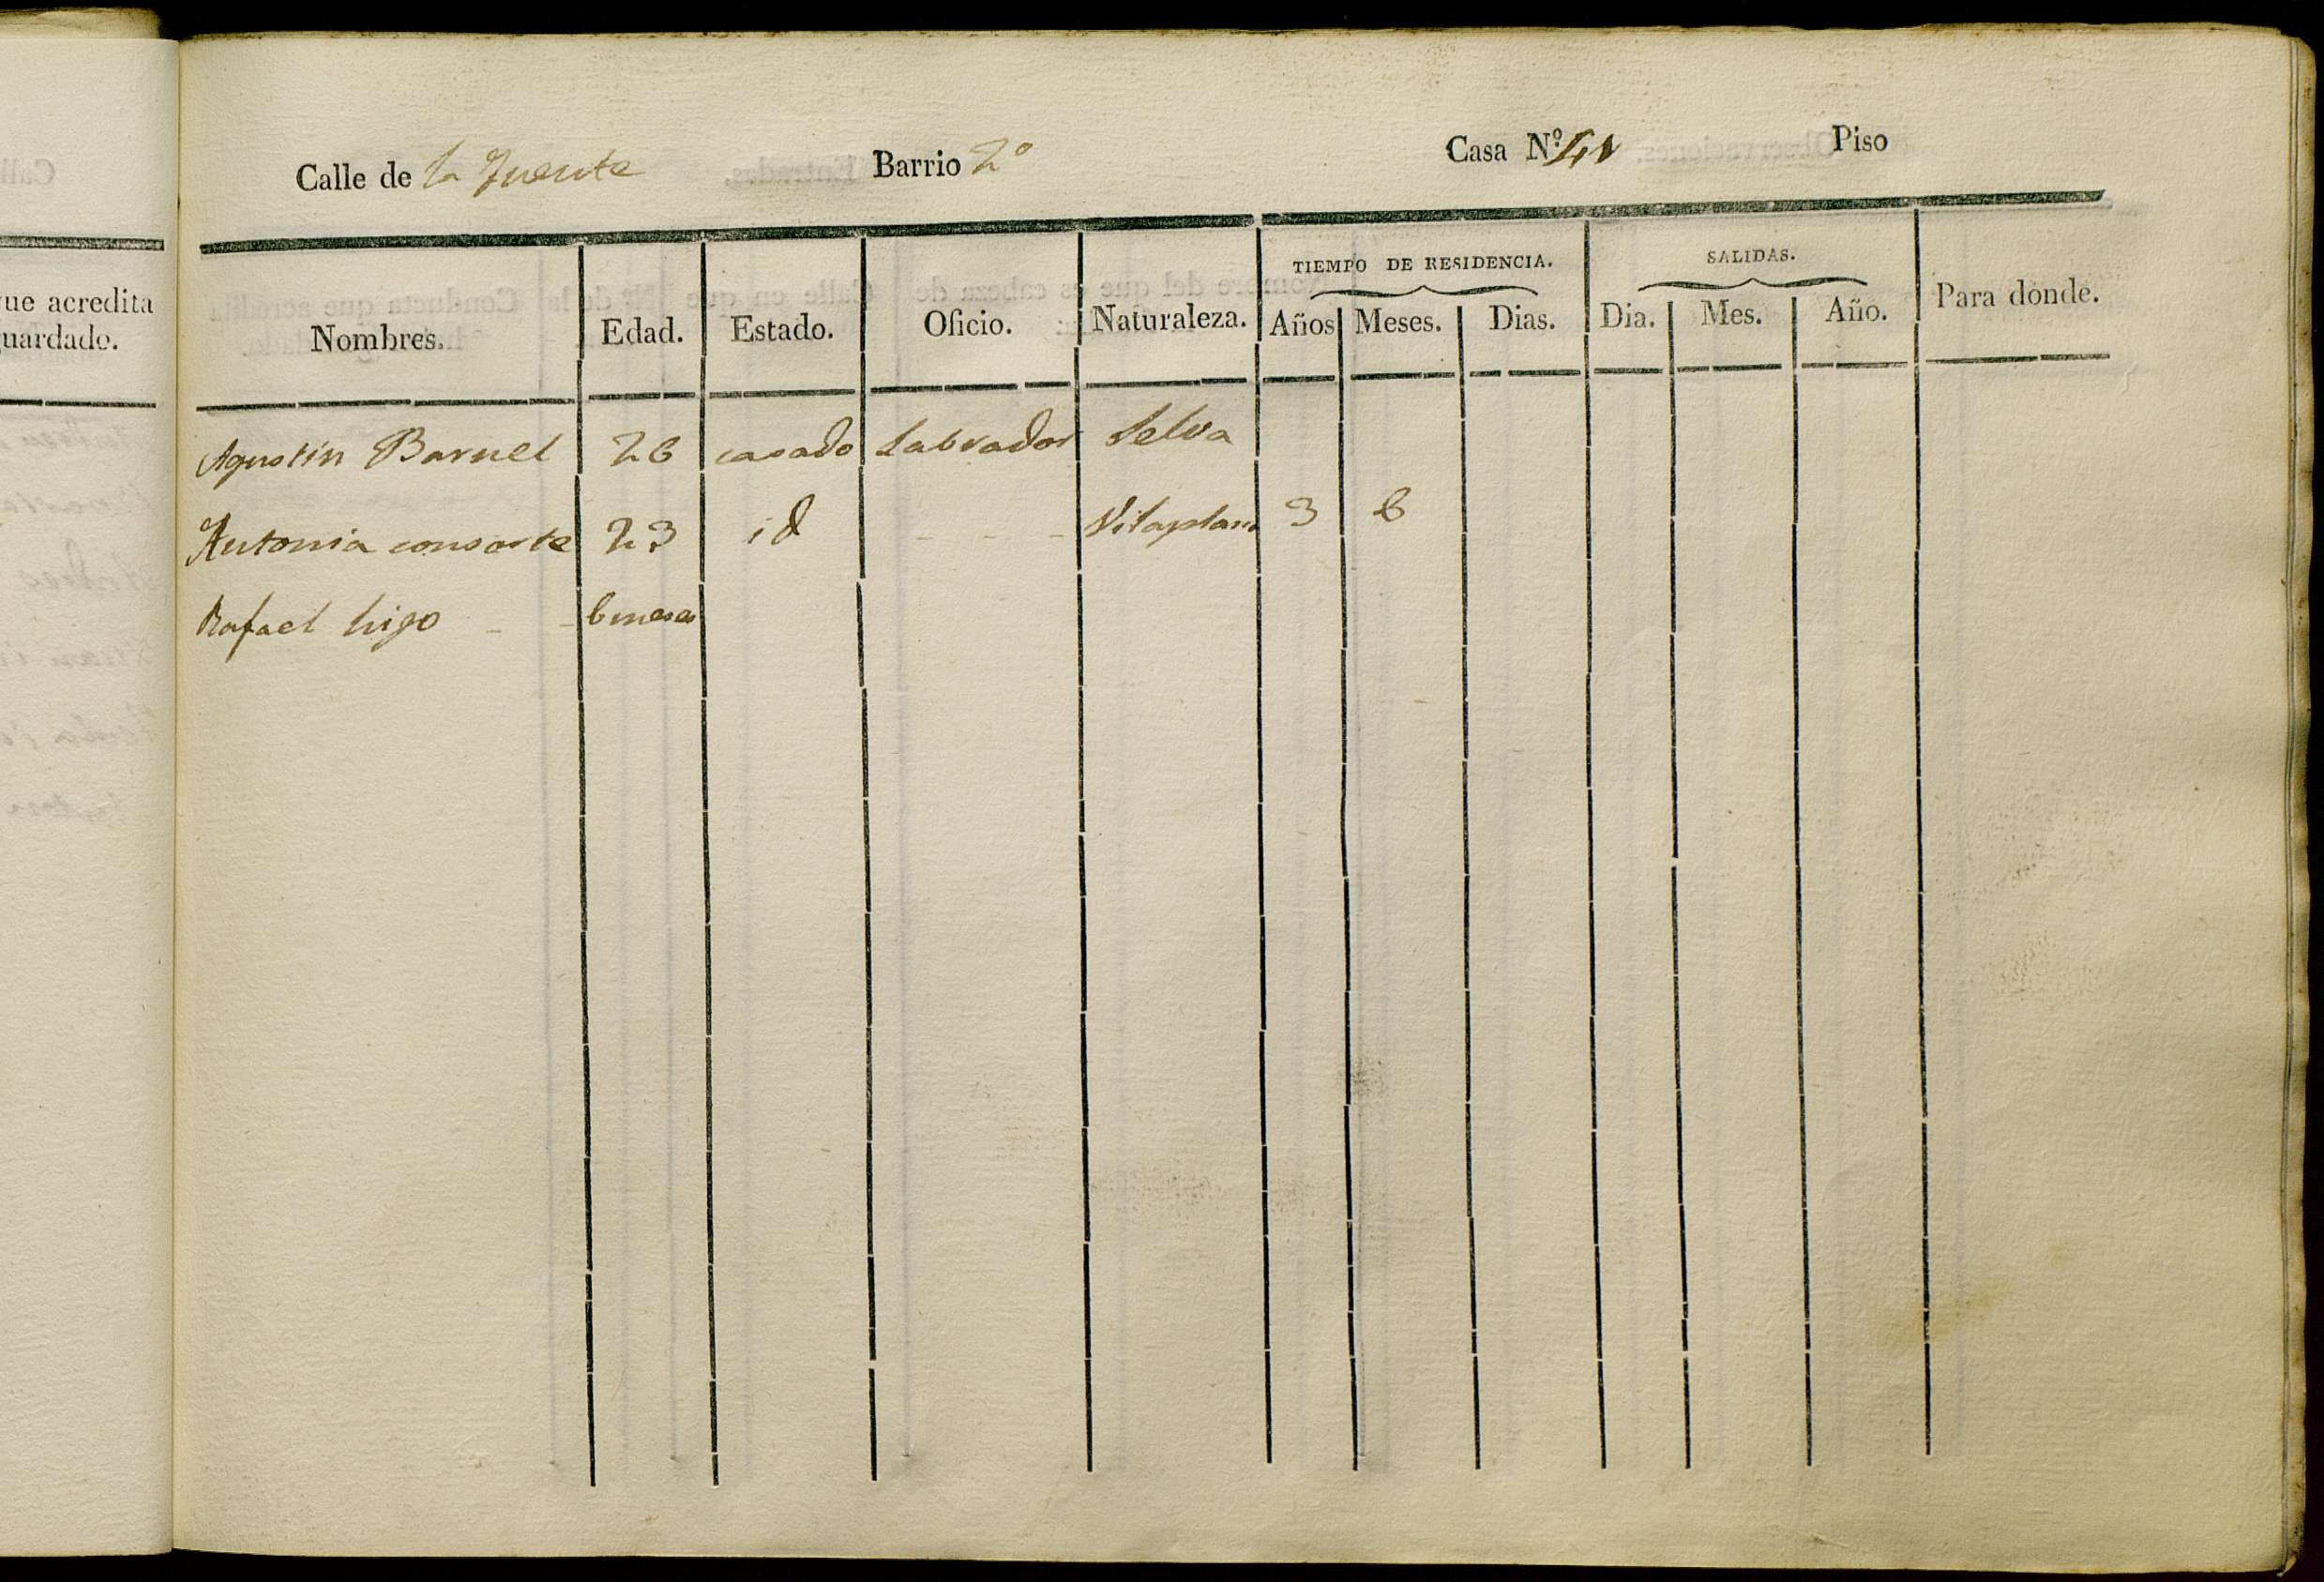 Calle de la Fuente Barrio 2º Casa Nº 41 Piso
ue acredita
uardado.
TIEMPO DE RESIDENCIA. SALIDAS.
Nombres. Edad. Estado. Oficio. Naturaleza. Años Meses. Dias. Dia. Mes. Año. Para donde.
Agustin Baruel 26 casado Labrador Selva
Antonia consorte 23 id - - - Vilaplana 3 6
Rafael hijo - - 6 meses